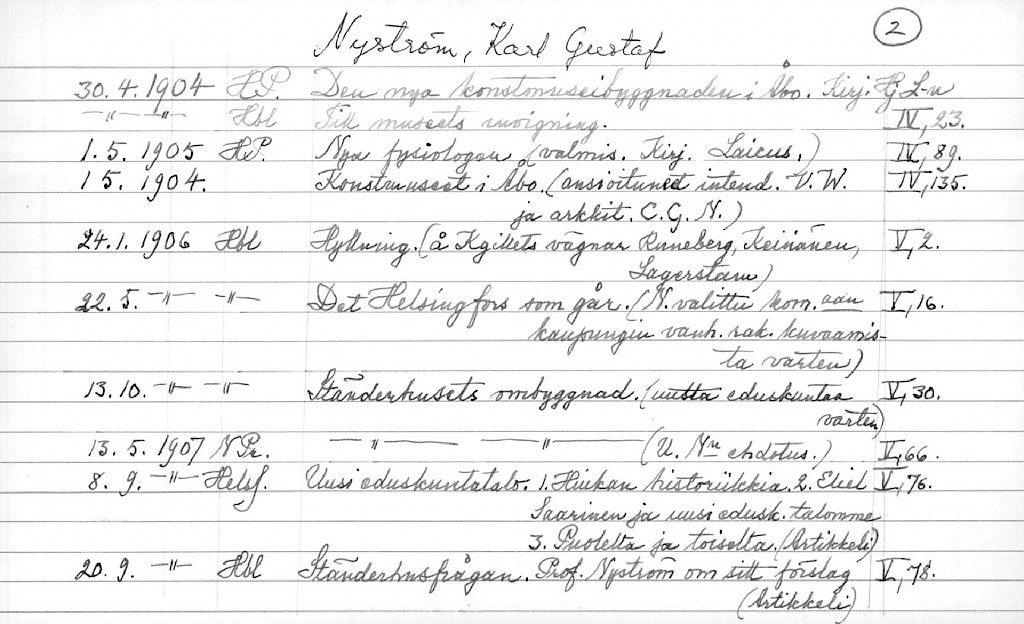 2
Nyström, Karl Gustaf
30.4.1904 H.P. Den nya konstmuseibyggnaden i Åbo. Kirj. Hj. L-n
—〃— —〃— Hbl Till museets invigning. IV, 23.
1.5. 1905 H.P. Nya fysiologen (valmis. Kirj. Laicus.) IV, 89.
15. 1904. Konstmuseet i Åbo. (ansioituneet intend. V.W. IV, 135.
ja arkkit. C.G.N.)
24.1. 1906 Hbl Hyllning. (å Kgillets vägnar Runeberg, Keinänen, V, 2.
Lagerstam)
22.5. —〃— —〃— Det Helsingfors som går. (N. valittu kom.aan V, 16.
kaupungin vanh. rak. kuvaamis-
ta varten)
13.10. —〃— —〃— Ständerhusets ombyggnad. (uutta eduskuntaa V, 30.
varten)
13.5. 1907 N Pr. —〃— —〃— (U. N:n ehdotus.) V, 66.
8. 9. —〃— Helsf. Uusi eduskuntatalo. 1. Hiukan historiikkia. 2. Eliel V, 76.
Saarinen ja uusi edusk. talomme
3. Puolelta ja toiselta. (Artikkeli)
20. 9. —〃— Hbl Ständerhusfrågan. Prof. Nyström om sitt förslag V, 78.
(Artikkeli)